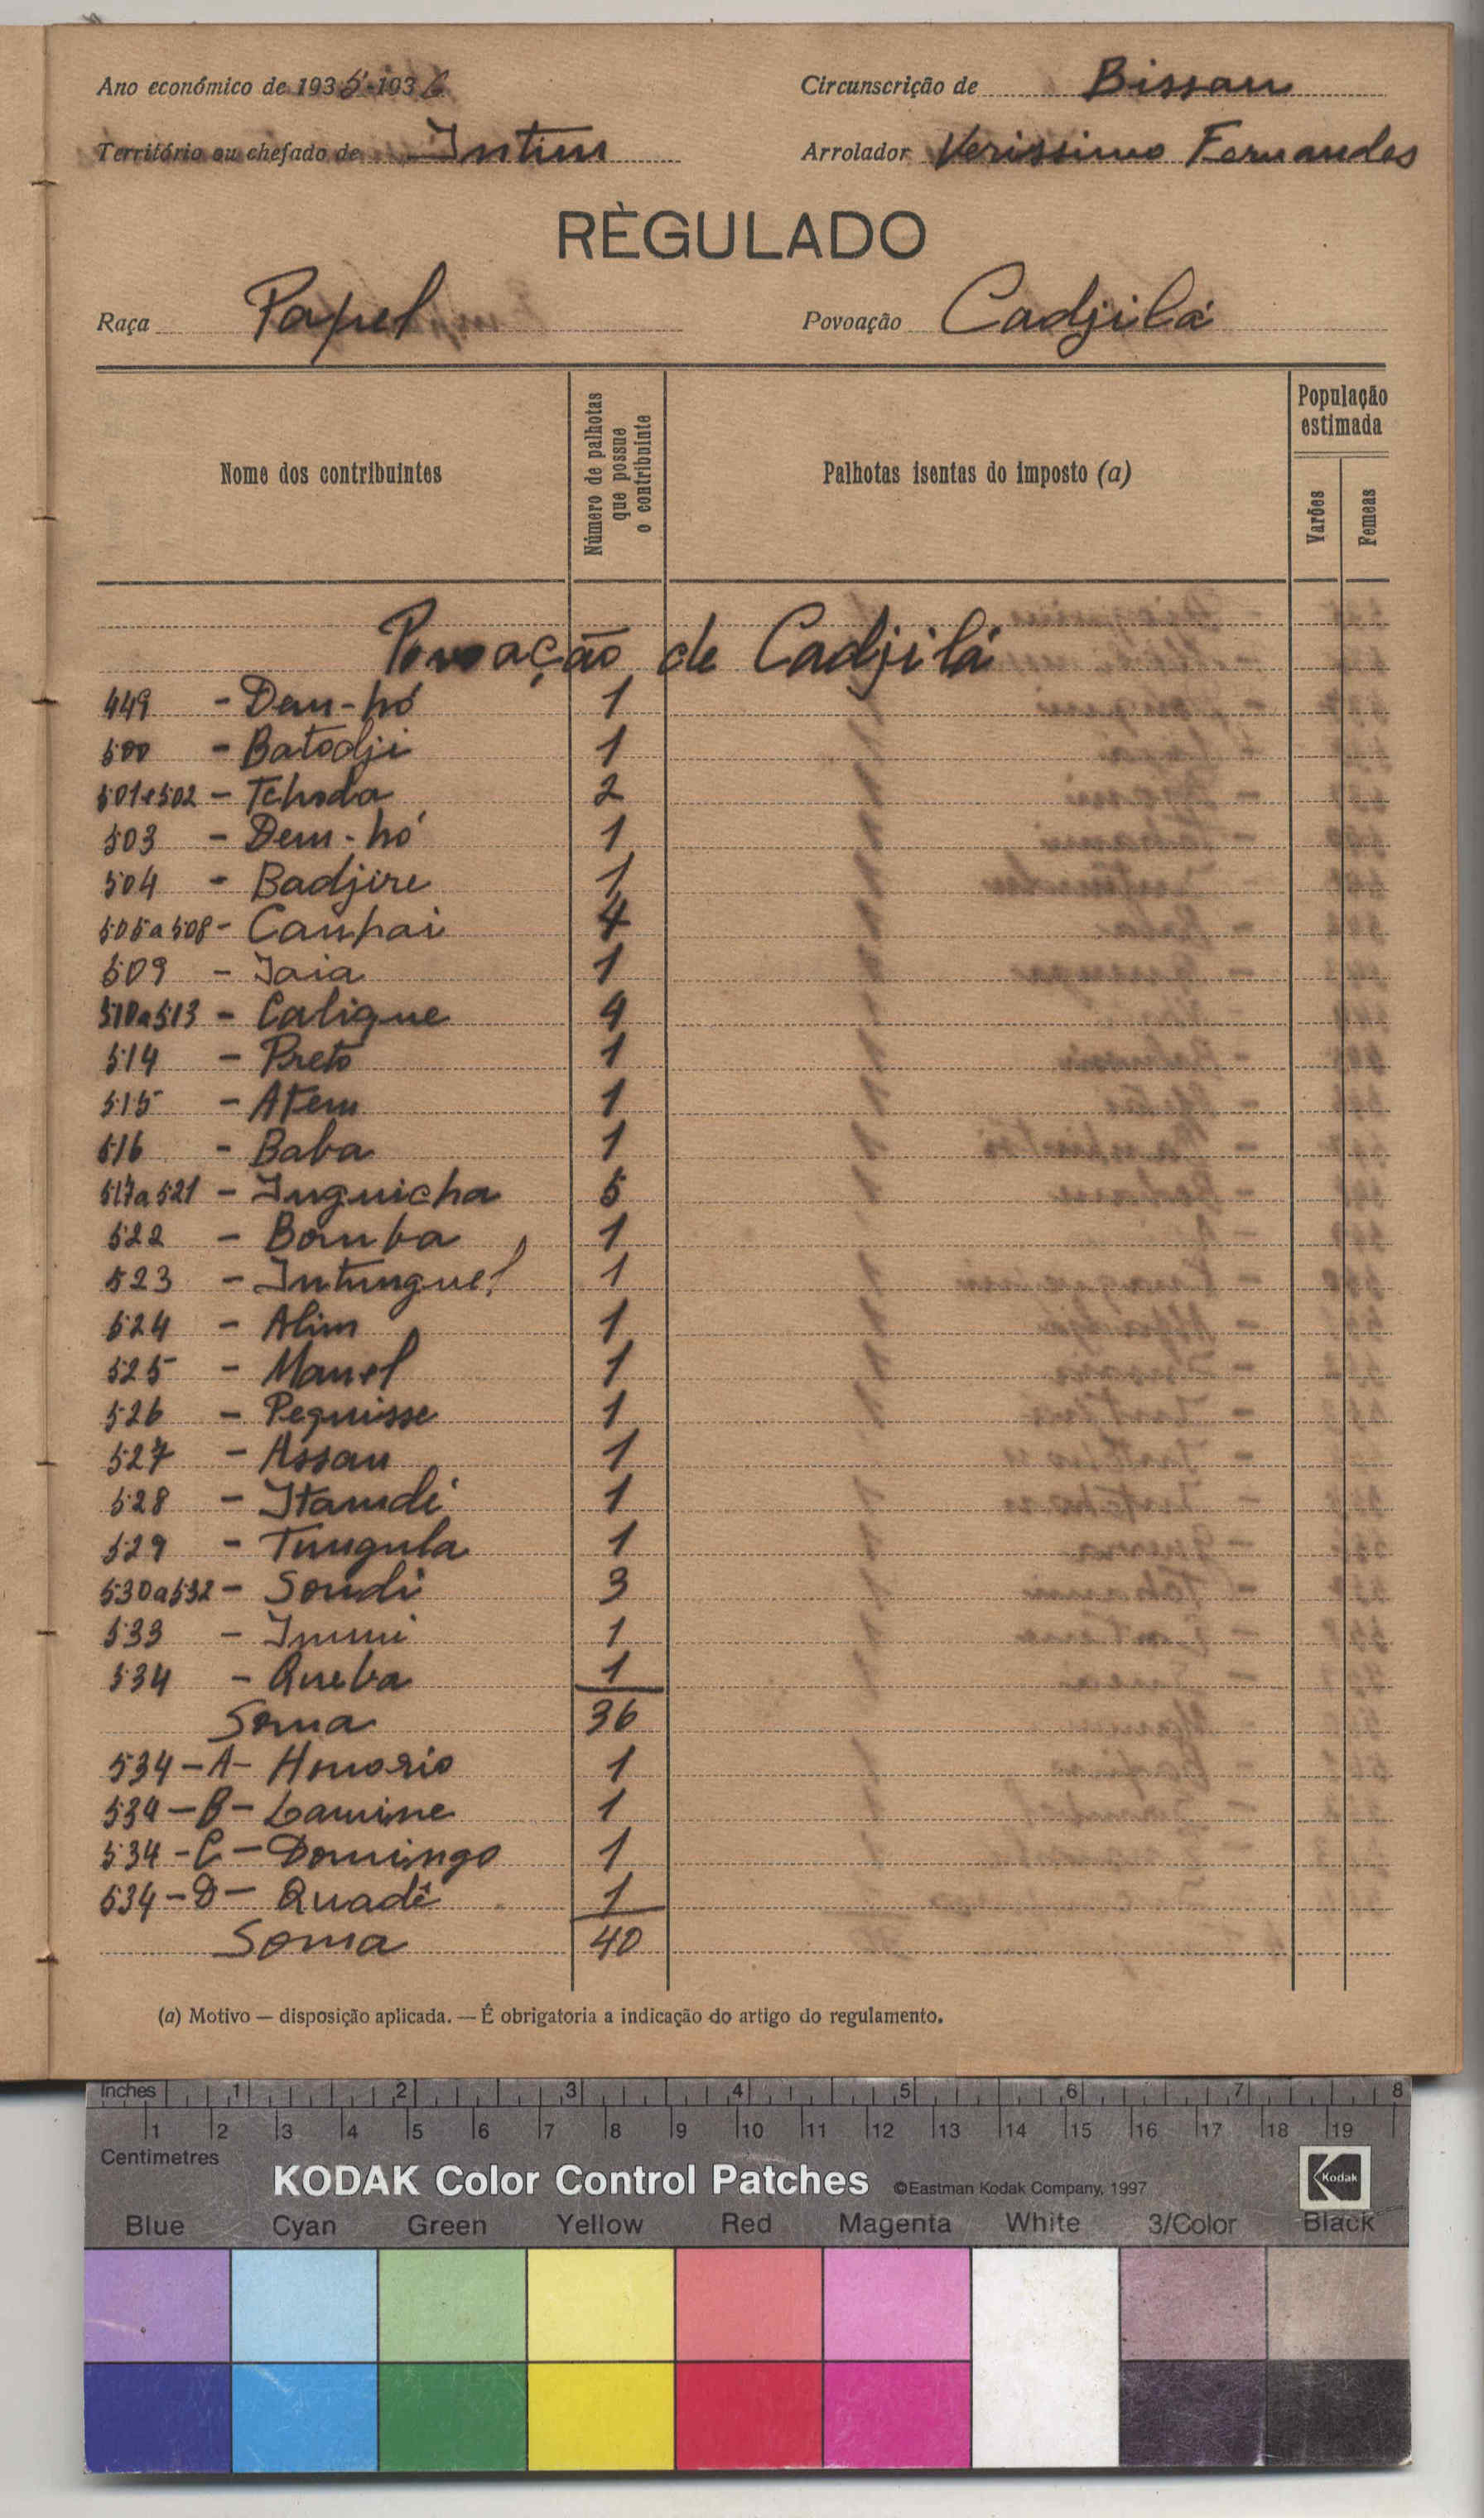 Ano económico de 1935-1936
Circunscrição de Bissau
Território ou chefado de Intim
Arrolador Verissimo Fernandes
RÈGULADO
Raça Papel
Povoação Cadjilá
Nome dos contribuintes
Número de palhotas que possue o contribuinte
Palhotas isentas do imposto (a)
População estimada
Varões
Femeas
Povoação de Cadjilá
449 - Dem-hó 1
500 - Batodji 1
501 e 502 - Tchoda 2
503 - Dem-hó 1
504 - Badjire 1
505 a 508 - Canhai 4
509 - Iaia 1
510 a 513 - Caligue 4
514 - Preto 1
515 - Atem 1
516 - Baba 1
517 a 521 - Inguicha 5
522 - Bomba 1
523 - Intunguel 1
524 - Alim 1
525 - Manel 1
526 - Pequisse 1
527 - Assau 1
528 - Itamdi 1
529 - Tungula 1
530 a 532 - Sondi 3
533 - Inumi 1
534 - Queba 1
Soma 36
534-A- Honorio 1
534-B- Lamine 1
534-C- Domingo 1
534-D- Quadê 1
Soma 40
(a) Motivo — disposição aplicada. — É obrigatoria a indicação do artigo do regulamento.
Inches 1 2 3 4 5 6 7 8
1 2 3 4 5 6 7 8 9 10 11 12 13 14 15 16 17 18 19
Centimetres
KODAK Color Control Patches ©Eastman Kodak Company, 1997 Kodak
Blue Cyan Green Yellow Red Magenta White 3/Color Black